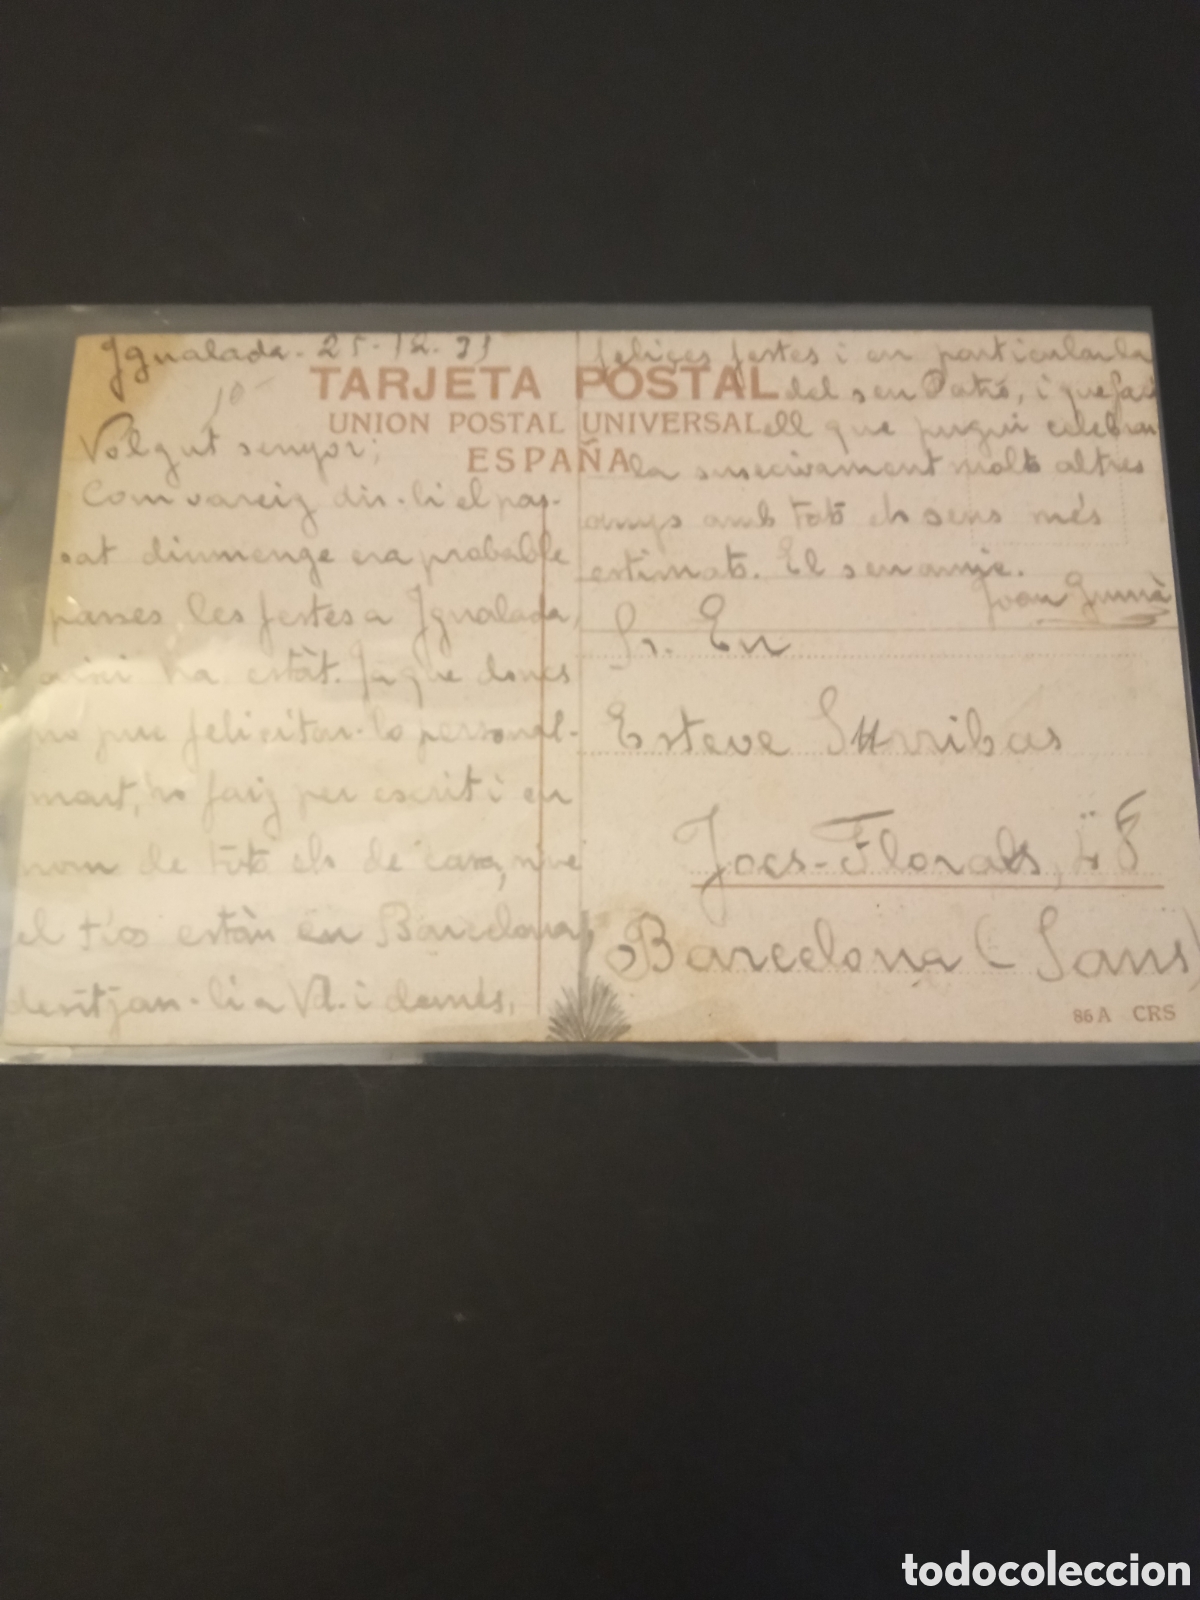 Igualada. 25-12-31
10
TARJETA POSTAL
UNION POSTAL UNIVERSAL
ESPAÑA
Volgut senyor;
Com vareig dir-li el pas-
sat diumenge era probable
passes les festes a Igualada,
aixi ha estàt. Ja que doncs
no puc felicitar-lo personal-
ment, ho faig per escrit i en
nom de tots els de casa,
el tios estàn en Barcelona,
desitjan-li a Vd. i demés,
felices festes i en particular la
del seu Patró, i que faci
ell que pugui celebrar
la susecivament molts altres
anys amb tots els seus més
estimats. El seu amic.
Joan
Sr. En
Esteve Surribas
Jocs-Florals,
Barcelona (Sans)
86 A CRS
todocoleccion